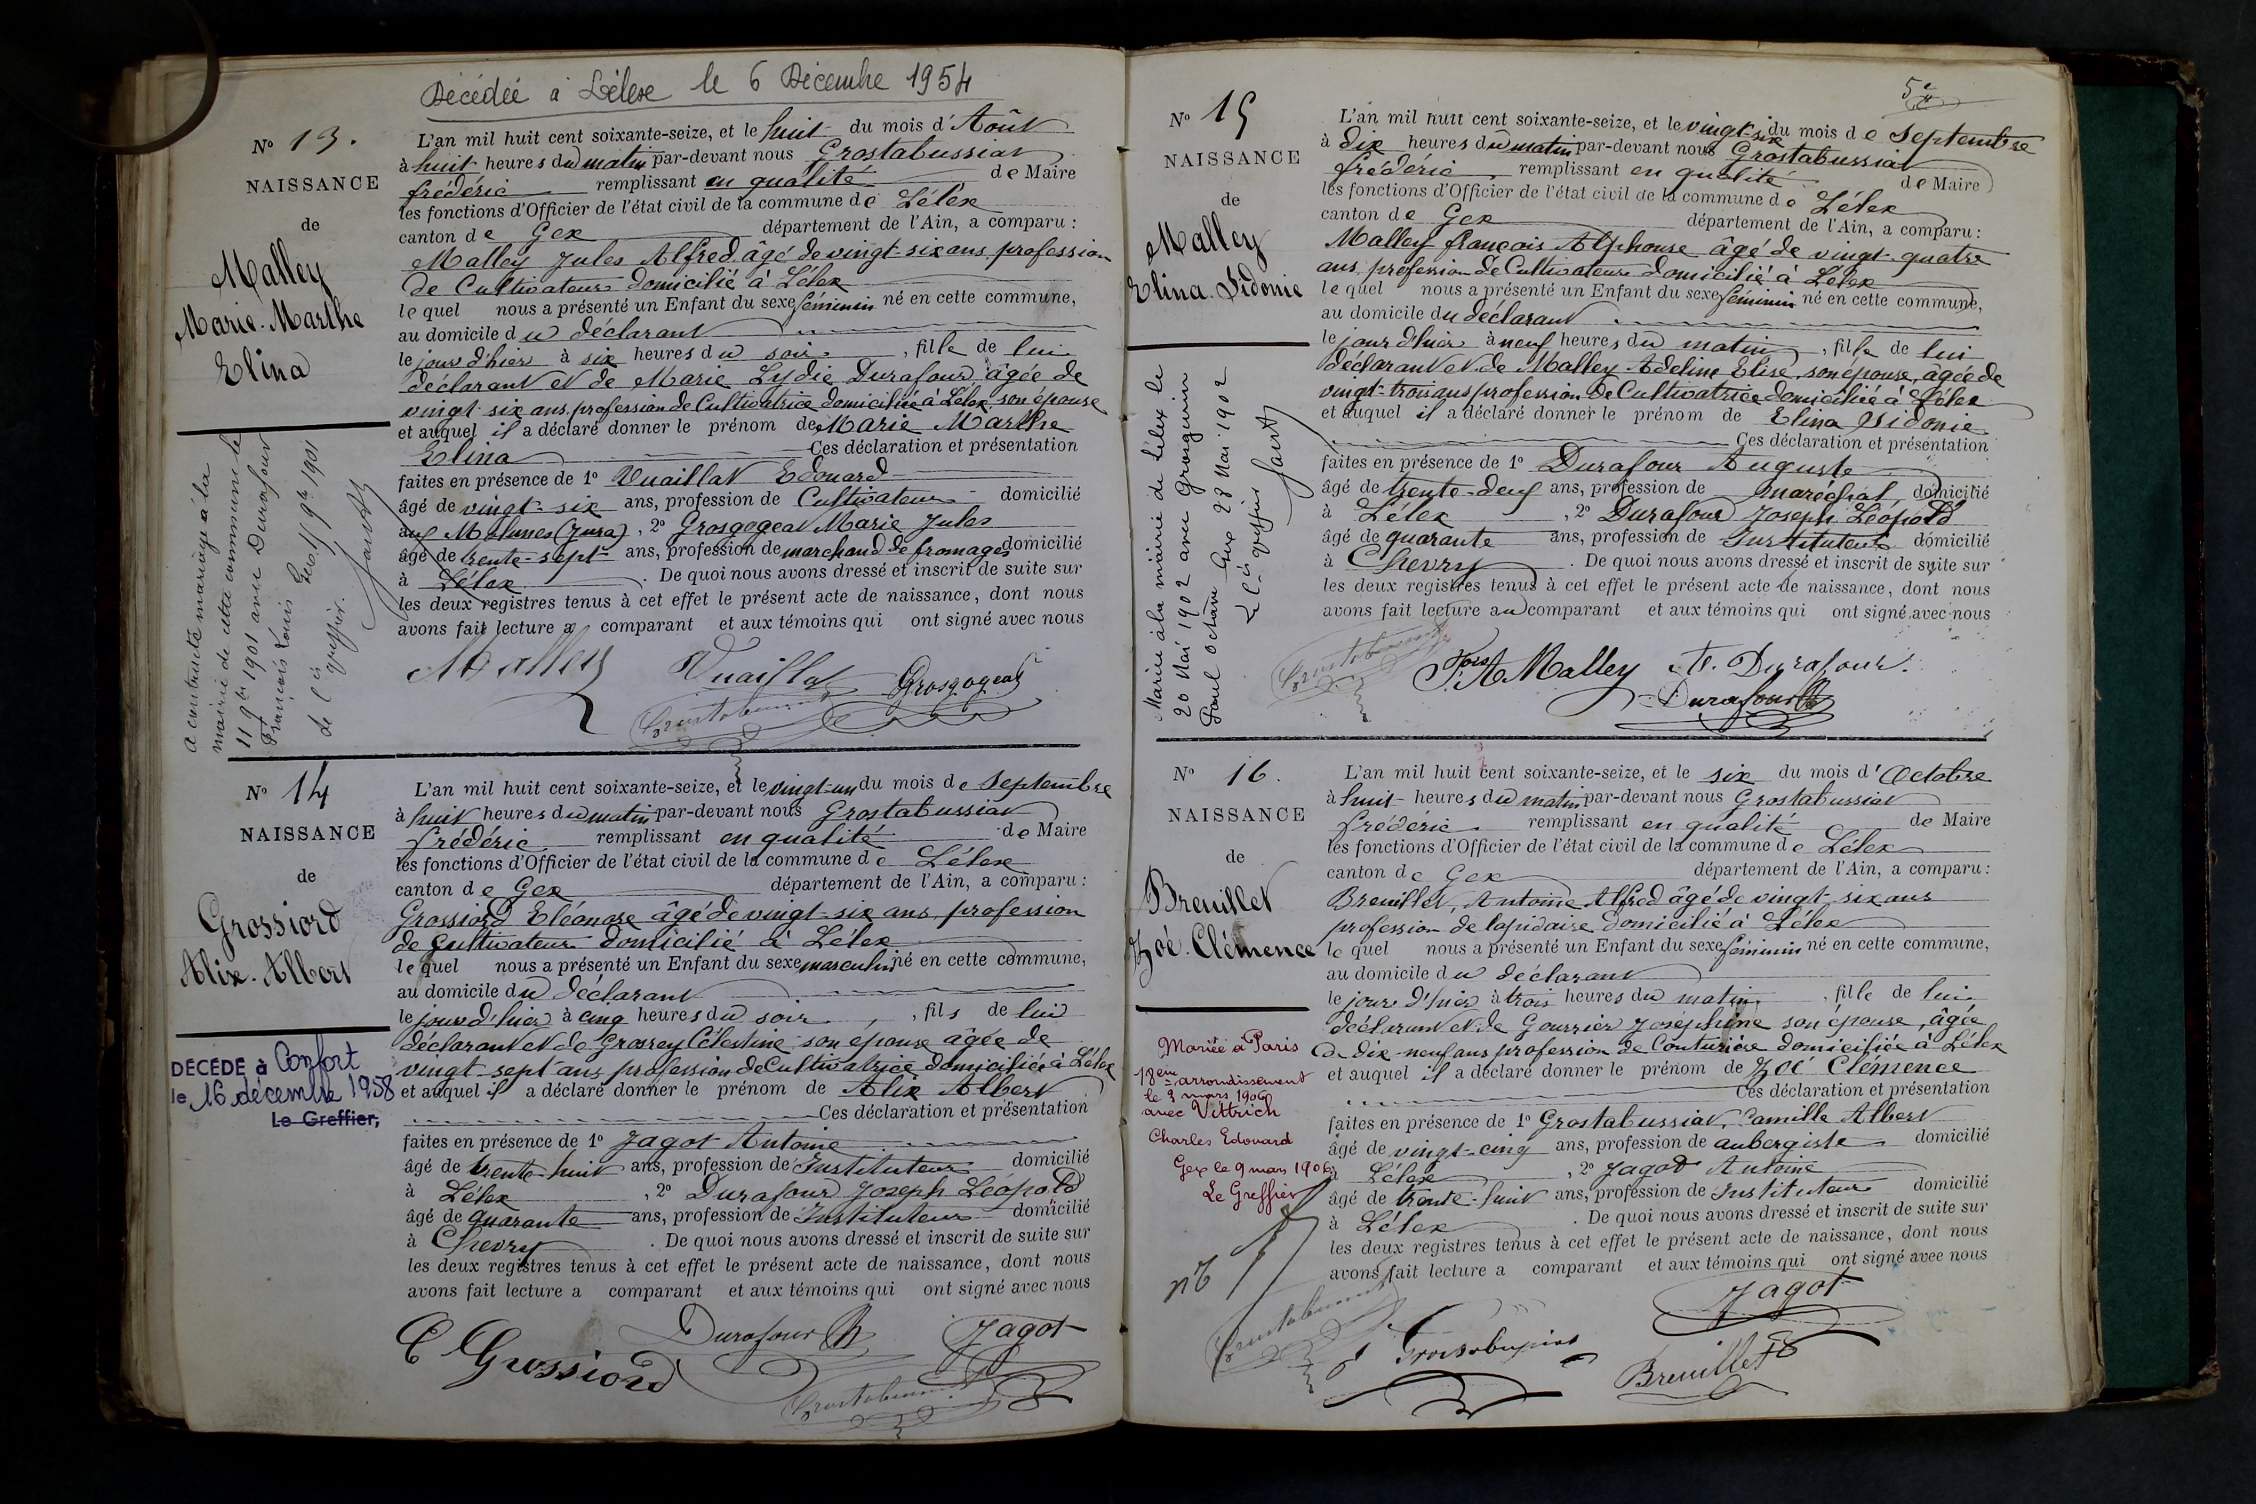 Décédée à Lélex le 6 Décembre 1954
N° 13.
NAISSANCE
de
Malley
Marie-Marthe
Elina
a contracté mariage à la
mairie de cette commune le
11 9bre 1901 avec Durafour
François Louis Gex 11 9bre 1901
Le Cis greffier.
L'an mil huit cent soixante-seize, et le huit du mois d'Août
à huit heures du matin par-devant nous Grostabussiat
frédéric remplissant en qualité de Maire
les fonctions d'Officier de l'état civil de la commune de Lélex
canton de Gex département de l'Ain, a comparu :
Malley Jules Alfred âgé de vingt-six ans, profession
de Cultivateur domicilié à Lélex
lequel nous a présenté un Enfant du sexe féminin né en cette commune,
au domicile du déclarant
le jour d'hier à six heures du soir, fille de lui
déclarant et de Marie Lydie Durafour âgée de
vingt-six ans, profession de Cultivatrice domiciliée à Lélex, son épouse
et auquel il a déclaré donner le prénom de Marie Marthe
Elina Ces déclaration et présentation
faites en présence de 1° Vuaillat Edouard
âgé de vingt-six ans, profession de Cultivateur domicilié
aux Molunes (Jura), 2° Grosgogeat Marie Jules
âgé de trente-sept ans, profession de marchand de fromages domicilié
à Lélex. De quoi nous avons dressé et inscrit de suite sur
les deux registres tenus à cet effet le présent acte de naissance, dont nous
avons fait lecture a comparant et aux témoins qui ont signé avec nous
Malley Vuaillat Grosgogeat
Grostabussiat
N° 14
NAISSANCE
de
Grossiord
Alix-Albert
DÉCÉDÉ à Confort
le 16 décembre 1958
Le Greffier,
L'an mil huit cent soixante-seize, et le vingt-un du mois de Septembre
à huit heures du matin par-devant nous Grostabussiat
frédéric remplissant en qualité de Maire
les fonctions d'Officier de l'état civil de la commune de Lélex
canton de Gex département de l'Ain, a comparu :
Grossiord Eléonore âgé de vingt-six ans, profession
de Cultivateur domicilié à Lélex
lequel nous a présenté un Enfant du sexe masculin né en cette commune,
au domicile du déclarant
le jour d'hier à cinq heures du soir, fils de lui
déclarant et de Grosrey Célestine son épouse âgée de
vingt-sept ans, profession de Cultivatrice domiciliée à Lélex
et auquel il a déclaré donner le prénom de Alix Albert
Ces déclaration et présentation
faites en présence de 1° Jagot Antoine
âgé de trente-huit ans, profession de Instituteur domicilié
à Lélex, 2° Durafour Joseph Léopold
âgé de quarante ans, profession de Instituteur domicilié
à Chevry. De quoi nous avons dressé et inscrit de suite sur
les deux registres tenus à cet effet le présent acte de naissance, dont nous
avons fait lecture a comparant et aux témoins qui ont signé avec nous
E Grossiord Durafour Jagot
Grostabussiat
N° 15
NAISSANCE
de
Malley
Elina-Sidonie
Mariée à la mairie de Lélex le
20 Mai 1902 avec Grosgurin
Paul Octave Gex 28 Mai 1902
Le Cis greffier
L'an mil huit cent soixante-seize, et le vingt-six du mois de Septembre
à dix heures du matin par-devant nous Grostabussiat
frédéric remplissant en qualité de Maire
les fonctions d'Officier de l'état civil de la commune de Lélex
canton de Gex département de l'Ain, a comparu :
Malley françois Alphonse âgé de vingt-quatre
ans, profession de Cultivateur domicilié à Lélex
lequel nous a présenté un Enfant du sexe féminin né en cette commune,
au domicile du déclarant
le jour d'hier à neuf heures du matin, fille de lui
déclarant et de Malley Adeline Elise, son épouse, âgée de
vingt-trois ans profession de Cultivatrice domiciliée à Lélex
et auquel il a déclaré donner le prénom de Elina Sidonie
Ces déclaration et présentation
faites en présence de 1° Durafour Auguste
âgé de trente-deux ans, profession de maréchal, domicilié
à Lélex, 2° Durafour Joseph Léopold
âgé de quarante ans, profession de Instituteur domicilié
à Chevry. De quoi nous avons dressé et inscrit de suite sur
les deux registres tenus à cet effet le présent acte de naissance, dont nous
avons fait lecture au comparant et aux témoins qui ont signé avec nous
Grostabussiat Fois A Malley A. Durafour
Durafour
N° 16.
NAISSANCE
de
Breuillet
Zoé-Clémence
Mariée à Paris
18ème arrondissement
le 3 mars 1906
avec Vittrich
Charles Edouard
Gex le 9 mars 1906
Le Greffier
L'an mil huit cent soixante-seize, et le six du mois d'Octobre
à huit heures du matin par-devant nous Grostabussiat
frédéric remplissant en qualité de Maire
les fonctions d'Officier de l'état civil de la commune de Lélex
canton de Gex département de l'Ain, a comparu :
Breuillet, Antoine Alfred âgé de vingt-six ans
profession de lapidaire domicilié à Lélex
lequel nous a présenté un Enfant du sexe féminin né en cette commune,
au domicile du déclarant
le jour d'hier à trois heures du matin, fille de lui
déclarant et de Gourrier Joséphine son épouse, âgée
de dix-neuf ans profession de Couturière domiciliée à Lélex
et auquel il a déclaré donner le prénom de Zoé Clémence
Ces déclaration et présentation
faites en présence de 1° Grostabussiat, Camille Albert
âgé de vingt-cinq ans, profession de aubergiste domicilié
à Lélex, 2° Jagot Antoine
âgé de trente-huit ans, profession de Instituteur domicilié
à Lélex. De quoi nous avons dressé et inscrit de suite sur
les deux registres tenus à cet effet le présent acte de naissance, dont nous
avons fait lecture a comparant et aux témoins qui ont signé avec nous
Jagot
Grostabussiat
Breuillet